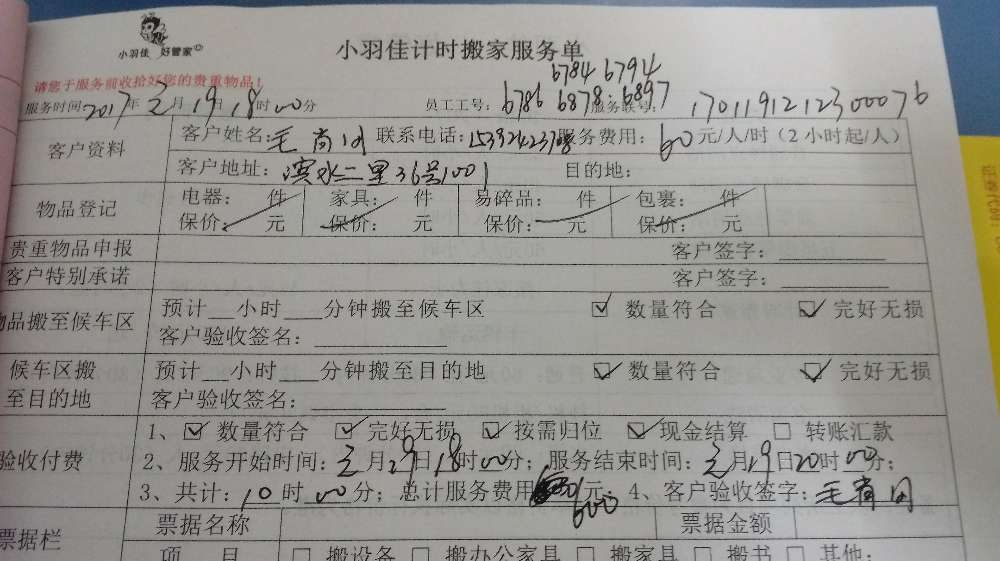 小羽佳 好管家
小羽佳计时搬家服务单
请您于服务前收拾好您的贵重物品！
6784 6794
服务时间2017年三月19日18时00分 员工工号：6786 6878.6897 服务联号：170119121230076
客户资料 客户姓名：毛肯 联系电话： 服务费用：60元/人/时（2小时起/人）
客户地址：滨水二里36号1001 目的地：
物品登记 电器： 件 家具： 件 易碎品： 件 包裹： 件
保价： 元 保价： 元 保价： 元 保价： 元
贵重物品申报 客户签字：
客户特别承诺 客户签字：
物品搬至候车区 预计 小时 分钟搬至候车区 ☑ 数量符合 ☑ 完好无损
客户验收签名：
候车区搬至目的地 预计 小时 分钟搬至目的地 ☑ 数量符合 ☑ 完好无损
客户验收签名：
验收付费 1、☑ 数量符合 ☑ 完好无损 ☑ 按需归位 ☑ 现金结算 □ 转账汇款
2、服务开始时间：三月29日18时00分；服务结束时间：三月19日20时00分；
3、共计：10时00分；总计服务费用 元 4、客户验收签字：毛肯
600
票据栏 票据名称 票据金额
项 目 □ 搬设备 □ 搬办公家具 □ 搬家具 □ 搬书 □ 其他：